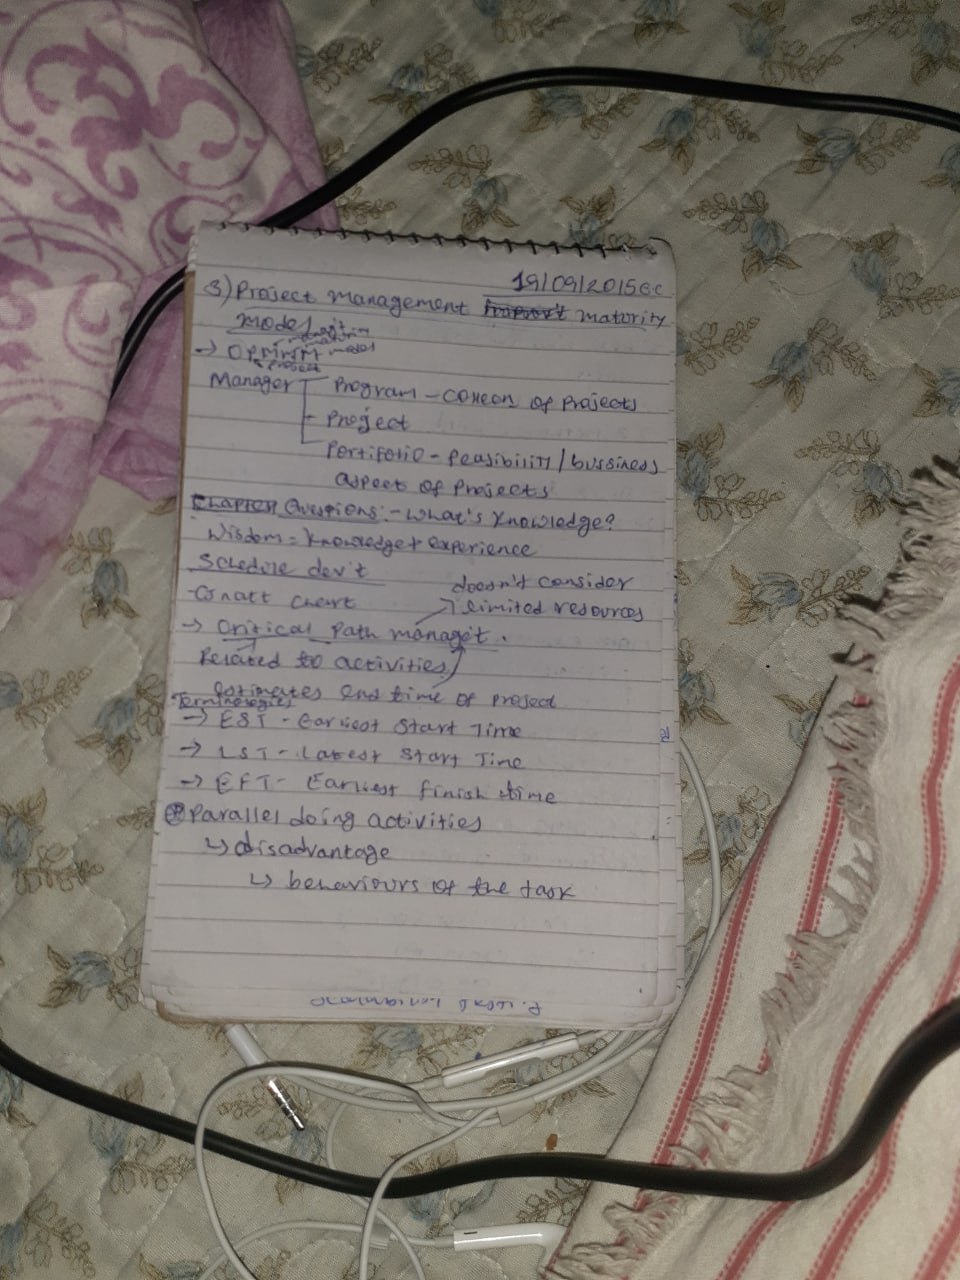 19/09/2015 E.C
3) Project management maturity
model
→ OPMMM
Manager
Program - collecn of projects
- Project
Portifolio - feasibility / bussiness
aspect of projects
Chapter Questions:- what's knowledge?
Wisdom = knowledge + experience
Schedule dev't
- Gnatt chart
doesn't consider
limited resources
→ Critical path managt.
Related to activities
estimates end time of project
Terminologies
→ EST - Earliest Start Time
→ LST - Latest Start Time
→ EFT - Earliest finish time
Parallel doing activities
↳ disadvantage
↳ behaviours of the task